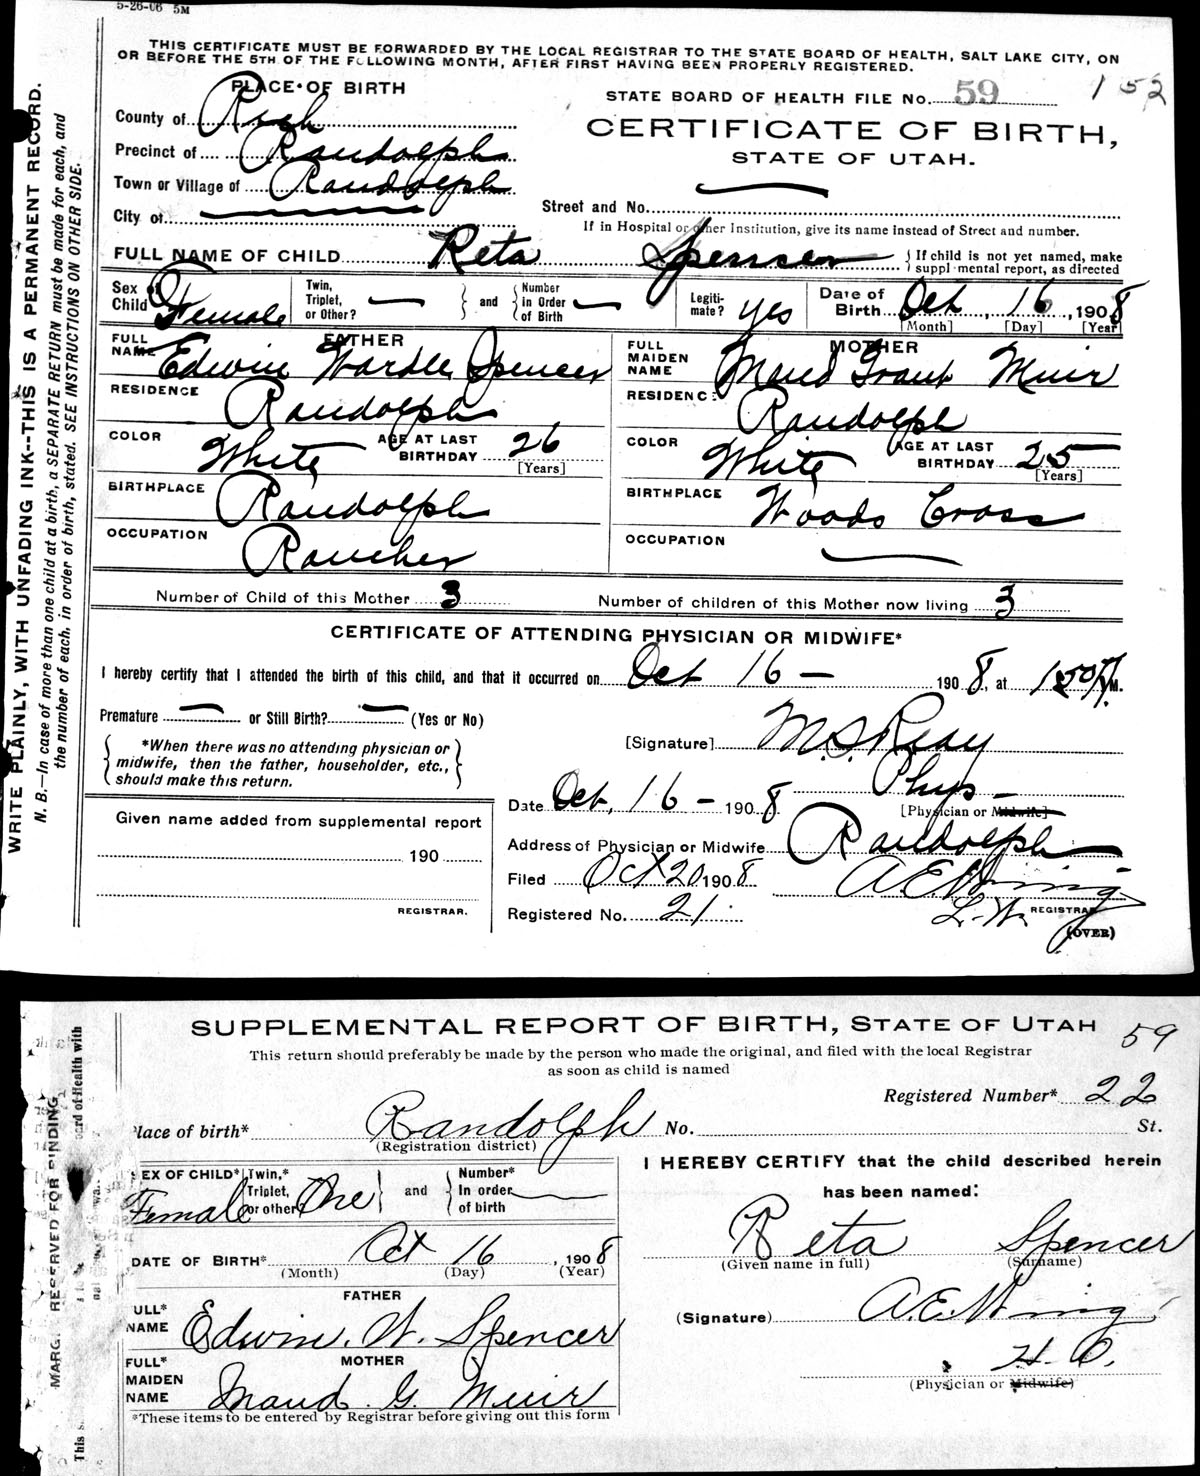 5-26-06 5M
THIS CERTIFICATE MUST BE FORWARDED BY THE LOCAL REGISTRAR TO THE STATE BOARD OF HEALTH, SALT LAKE CITY, ON
OR BEFORE THE 5TH OF THE FOLLOWING MONTH, AFTER FIRST HAVING BEEN PROPERLY REGISTERED.
WRITE PLAINLY, WITH UNFADING INK--THIS IS A PERMANENT RECORD.
N. B.—In case of more than one child at a birth, a SEPARATE RETURN must be made for each, and
the number of each, in order of birth, stated. SEE INSTRUCTIONS ON OTHER SIDE.
PLACE OF BIRTH
STATE BOARD OF HEALTH FILE No. 59
152
County of Rich
CERTIFICATE OF BIRTH,
Precinct of Randolph
STATE OF UTAH.
Town or Village of Randolph
Street and No.
City of
If in Hospital or other Institution, give its name instead of Street and number.
FULL NAME OF CHILD Reta Spencer
If child is not yet named, make
suppl mental report, as directed
Sex of Child Female
Twin, Triplet, or Other? — and Number in Order of Birth —
Legitimate? yes
Date of Birth Oct, 16, 1908
[Month] [Day] [Year]
FATHER
FULL NAME Edwin Wardle Spencer
RESIDENCE Randolph
COLOR White AGE AT LAST BIRTHDAY 26 [Years]
BIRTHPLACE Randolph
OCCUPATION Rancher
MOTHER
FULL MAIDEN NAME Maud Grant Muir
RESIDENC: Randolph
COLOR White AGE AT LAST BIRTHDAY 25 [Years]
BIRTHPLACE Woods Cross
OCCUPATION —
Number of Child of this Mother 3 Number of children of this Mother now living 3
CERTIFICATE OF ATTENDING PHYSICIAN OR MIDWIFE*
I hereby certify that I attended the birth of this child, and that it occurred on Oct 16 — 1908, at M.
Premature — or Still Birth? — (Yes or No)
[Signature] M. S. Reay
*When there was no attending physician or
midwife, then the father, householder, etc.,
should make this return.
Phys —
Date Oct, 16 — 1908
[Physician or Midwife]
Given name added from supplemental report
190
REGISTRAR.
Address of Physician or Midwife Randolph
Filed Oct 20 1908
Registered No. 21
REGISTRAR
(OVER)
SUPPLEMENTAL REPORT OF BIRTH, STATE OF UTAH 59
This return should preferably be made by the person who made the original, and filed with the local Registrar
as soon as child is named
MARG. RESERVED FOR BINDING
Registered Number* 22
lace of birth* Randolph No. St.
(Registration district)
EX OF CHILD* Female
Twin,* Triplet, or other One and Number* In order of birth —
I HEREBY CERTIFY that the child described herein
has been named:
Reta Spencer
(Given name in full) (Surname)
DATE OF BIRTH* Oct 16, 1908
(Month) (Day) (Year)
FATHER
ULL* NAME Edwin. W. Spencer
(Signature)
MOTHER
FULL* MAIDEN NAME Maud G. Muir
(Physician or Midwife)
*These items to be entered by Registrar before giving out this form